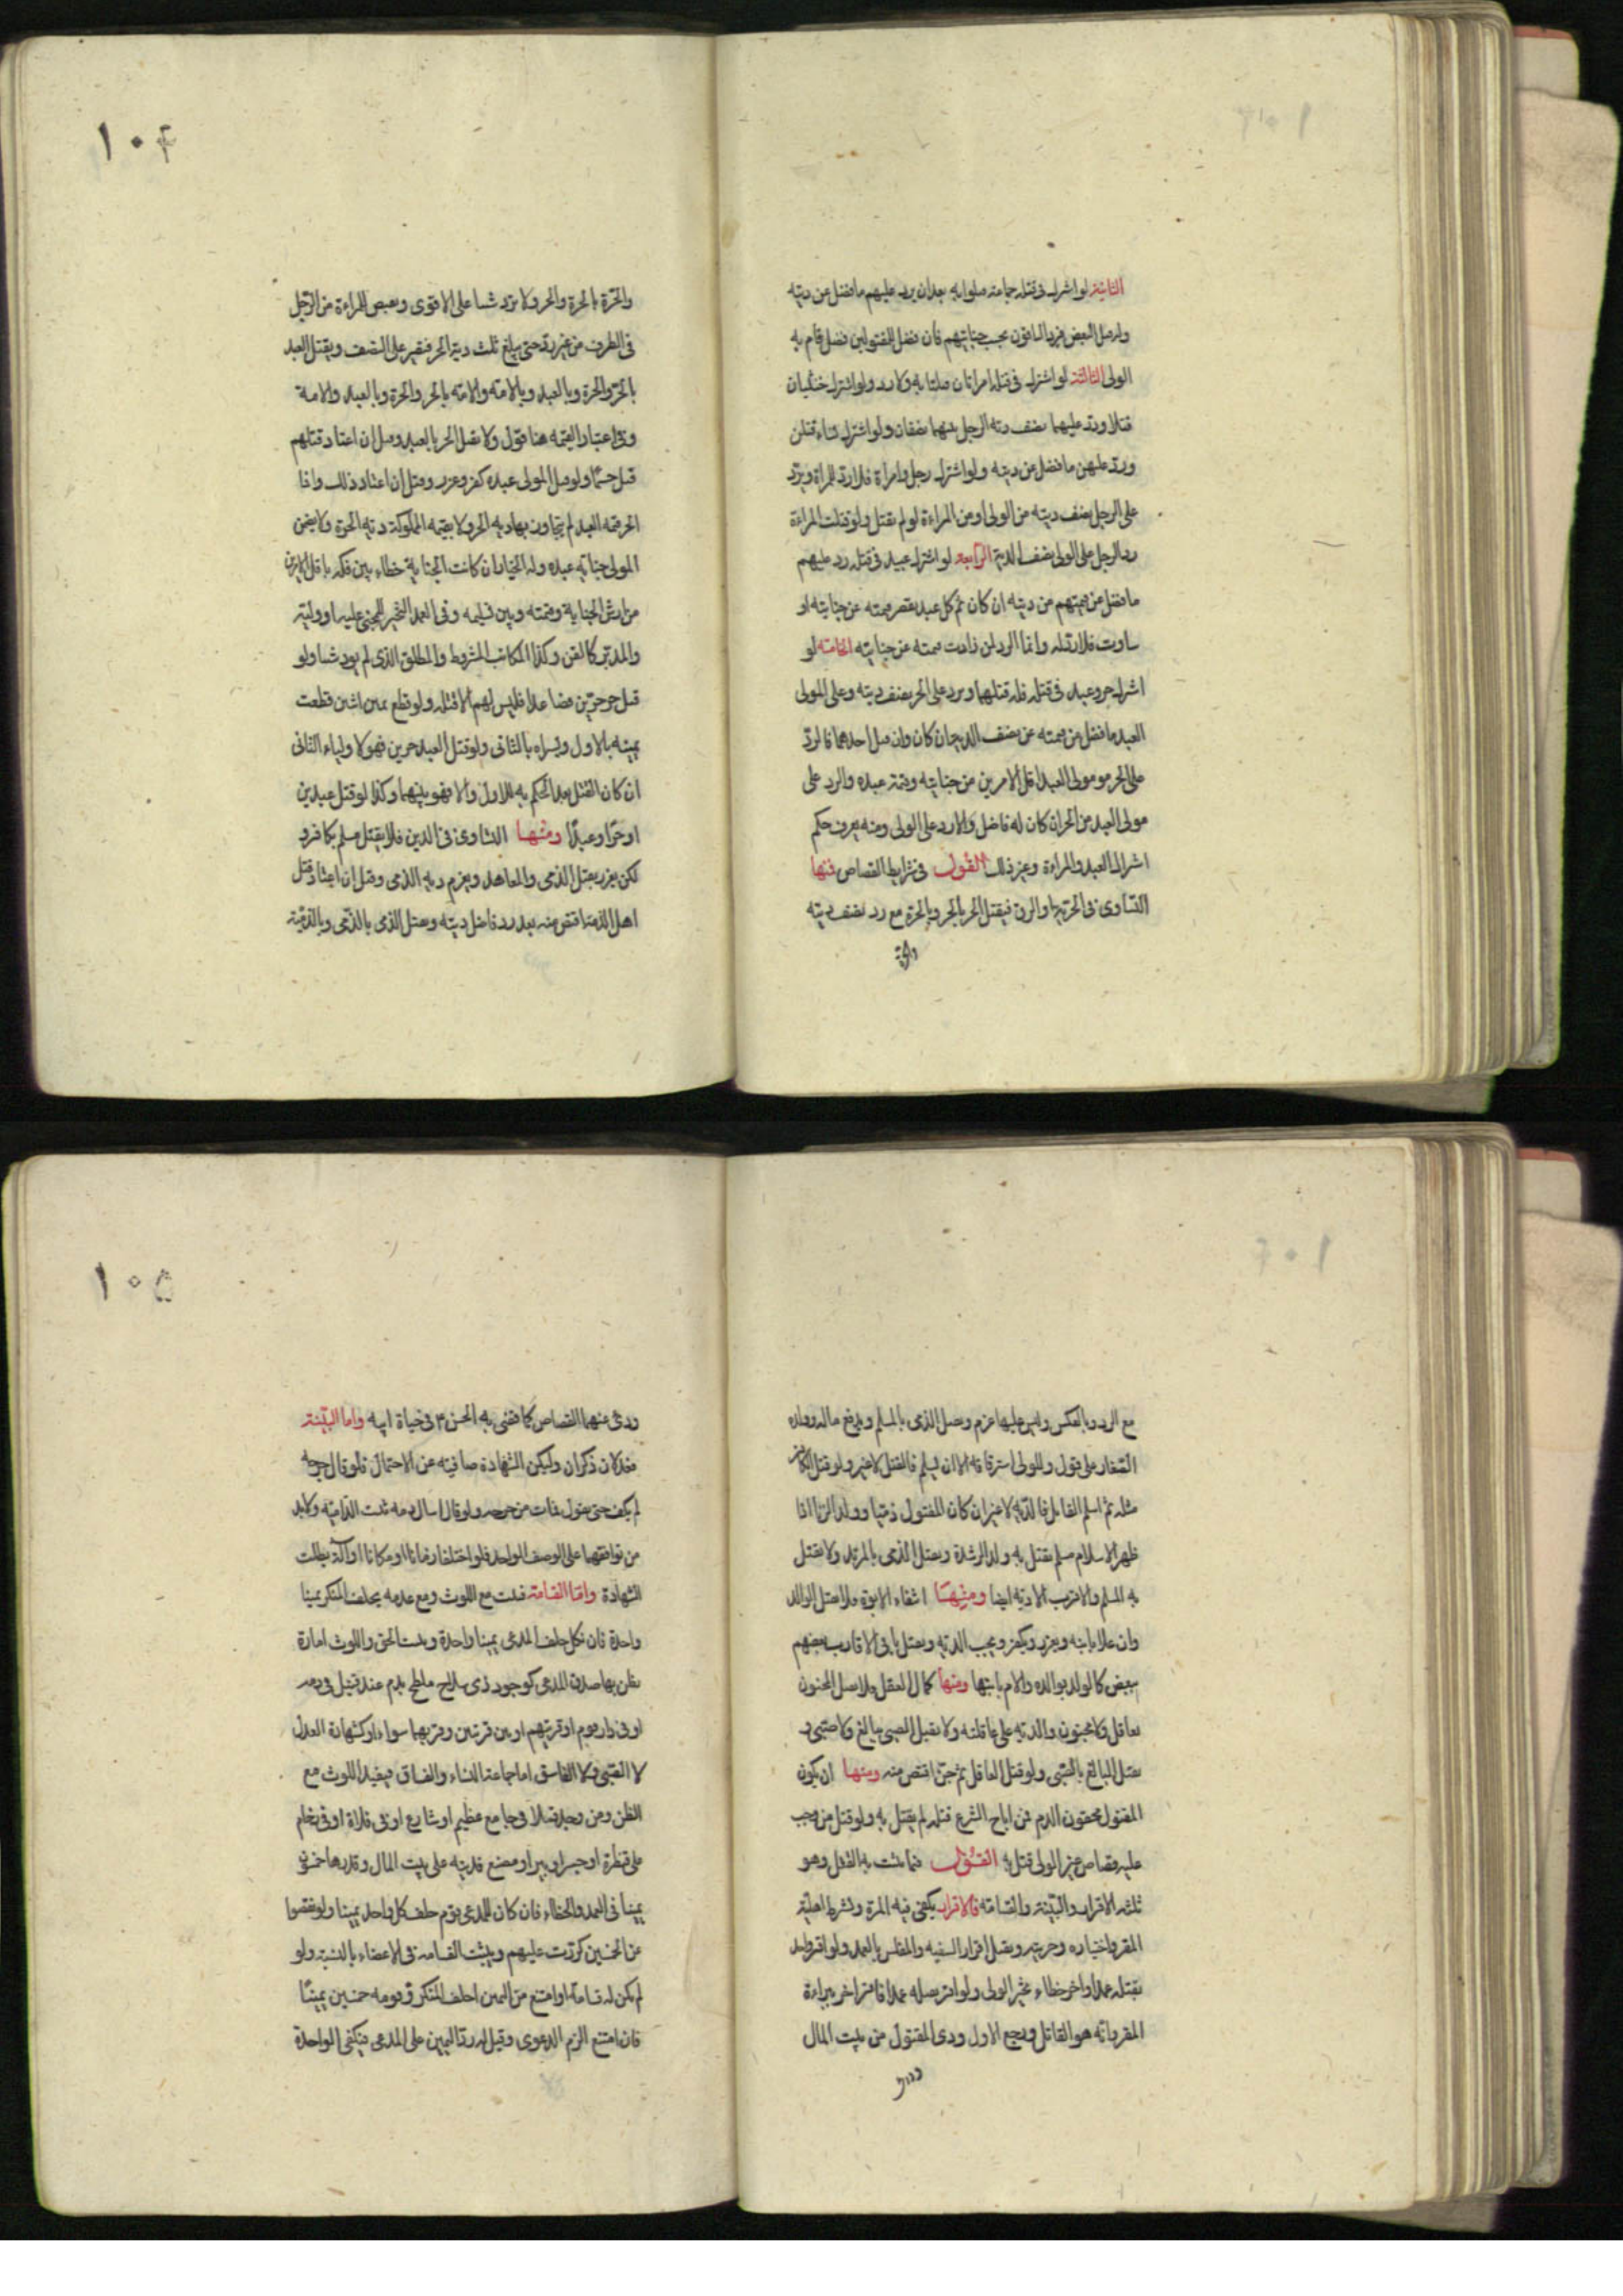 الثانية لو اشترك في قتله جماعة قتلوا به بعد ان يرد عليهم ما فضل عن ديته
وله قتل البعض فيرد الباقون بحسب جنايتهم فان فضل للمقتولين فضل قام به
الولى الثالثة لو اشترك في قتله امراتان قتلتا به ولا رد ولو اشترك خنثيان
قتلا ورد عليهما نصف دية الرجل بينهما نصفان ولو اشترك نساء قتلن
ورد عليهن ما فضل عن ديته ولو اشترك رجل وامراة فلا رد للمراة ويرد
على الرجل نصف ديته من الولى او من المراءة لو لم يقتل ولو قتلت المراءة
رد الرجل على الولى نصف الدية الرابعة لو اشترك عبيد في قتله رد عليهم
ما فضل عن قيمتهم من ديته ان كان ثم كل عبد نقصر قيمته عن جنايته او
ساوت فلا رد له وانما الرد لمن زادت قيمته عن جنايته الخامسة لو
اشترك حر وعبد في قتله فله قتلهما ويرد على الحر نصف ديته وعلى المولى
العبد ما فضل من قيمته عن نصف الدية ان كان وان قتل احدهما فالرد
على الحر من مولى العبد اقل الامرين من جنايته وقيمة عبده والرد على
مولى العبد من الحر ان كان له فاضل والا رد على الولى ومنه يعرف حكم
اشتراك العبد والمراءة وغير ذلك القول في شرايط القصاص فمنها
التساوى فى الحرية او الرق فيقتل الحر بالحر وبالحرة مع رد نصف ديته
والحرة
١٠۴
والحرة بالحرة والحر ولا يرد شيئا على الاقوى ويقتص للمراءة من الرجل
فى الطرف من غير رد حتى يبلغ ثلث دية الحر فيصير على النصف ويقتل العبد
بالحر والحرة وبالعبد وبالامة والامة بالحر والحرة وبالعبد والامة
وفى اعتبار القيمة هنا قول ولا يقتل الحر بالعبد وقيل ان اعتاد قتلهم
قتل حسما ولو قتل المولى عبده كفر وعزر وقيل ان اعتاد ذلك واذا
الحر قيمة العبد لم يتجاوز بها دية الحر ولا بقيمة المملوكة دية الحرة ولا يضمن
المولى جناية عبده وله الخيار ان كانت الجناية خطاء بين فكه باقل الامرين
من ارش الجناية وقيمته وبين تسليمه وفى العمد التخيير للمجنى عليه او وليه
والمدبر كالقن وكذا المكاتب المشروط والمطلق الذى لم يود شيئا ولو
قتل حر حرين فصاعدا فليس لهم الا قتله ولو قطع يمين اثنين قطعت
يمينه بالاول ويسراه بالثانى ولو قتل العبد حرين فهو لاولياء الثانى
ان كان القتل بعد الحكم به للاول والا فهو بينهما وكذا لو قتل عبدين
او حرا وعبدا ومنها التساوى فى الدين فلا يقتل مسلم بكافر و
لكن يعزر بقتل الذمى والمعاهد ويغرم دية الذمى وقيل ان اعتاد قتل
اهل الذمة اقتص منه بعد رد فاضل ديته ويقتل الذمى بالذمى وبالذمية
مع الرد وبالعكس وليس عليها غرم ويقتل الذمى بالمسلم ويدفع ماله وولده
الصغار على قول وللولى استرقاقه الا ان يسلم فالقتل لا غير ولو قتل الكافر
مثله ثم اسلم القاتل فالدية لا غير ان كان المقتول ذميا وولد الزنا اذا
ظهر الاسلام مسلم يقتل به ولد الرشدة ويقتل الذمى بالمرتد ولا يقتل
به المسلم والاقرب الا دية ايضا ومنها انتفاء الابوة فلا يقتل الوالد
وان علا بابنه ويعزر ويكفر ويجب الدية ويقتل باقى الاقارب بعضهم
ببعض كالولد بوالده والام بابنها ومنها كمال العقل فلا يقتل المجنون
بعاقل ولا مجنون والدية على عاقلته ولا يقتل الصبى ببالغ ولا صبى و
يقتل البالغ بالصبى ولو قتل العاقل ثم جن اقتص منه ومنها ان يكون
المقتول محقون الدم فمن اباح الشرع قتله لم يقتل به ولو قتل من وجب
عليه قصاص غير الولى قتل به القول فيما يثبت به القتل وهو
ثلثة الاقرار والبينة والقسامة فالاقرار يكفى فيه المرة ويشترط اهلية
المقر واختياره وحريته ويقبل اقرار السفيه والمفلس بالعمد ولو اقر واحد
بقتله عمدا واخر خطاء تخير الولى ولو اقر بقتله عمدا فاقر اخر ببراءة
المقر وانه هو القاتل ورجع الاول ودى المقتول من بيت المال
ودرئ
١٠۵
ودرئ عنهما القصاص كما قضى به الحسن ع فى حياة ابيه واما البينة
فعدلان ذكران وليكن الشهادة صافية عن الاحتمال فلو قال جرحه
لم يكف حتى يقول فمات من جرحه ولو قال اسال دمه ثبتت الدامية ولا بد
من توافقهما على الوصف الواحد فلو اختلفا زمانا او مكانا او آلة بطلت
الشهادة واما القسامة فثبت مع اللوث ومع عدمه يحلف المنكر يمينا
واحدة فان نكل حلف المدعى يمينا واحدة ويثبت الحق واللوث امارة
يظن بها صدق المدعى كوجود ذى سلاح ملطخ بدم عند قتيل فى دمه
او فى دار قوم او قريتهم او بين قريتين وقربهما سواء او كشهادة العدل
لا الصبى ولا الفاسق اما جماعة النساء والفساق فيفيد اللوث مع
الظن ومن وجد قتيلا فى جامع عظيم او شارع او فى فلاة او فى زحام
على قنطرة او جسر او بير او مصنع فديته على بيت المال وقدرها خمسون
يمينا فى العمد والخطاء فان كان للمدعى قوم حلف كل واحد يمينا ولو نقصوا
عن الخمسين كررت عليهم ويثبت القسامة فى الاعضاء بالنسبة ولو
لم يكن له قسامة او امتنع من اليمين احلف المنكر وقومه خمسين يمينا
فان امتنع الزم الدعوى وقيل له رد اليمين على المدعى فيكفى الواحدة